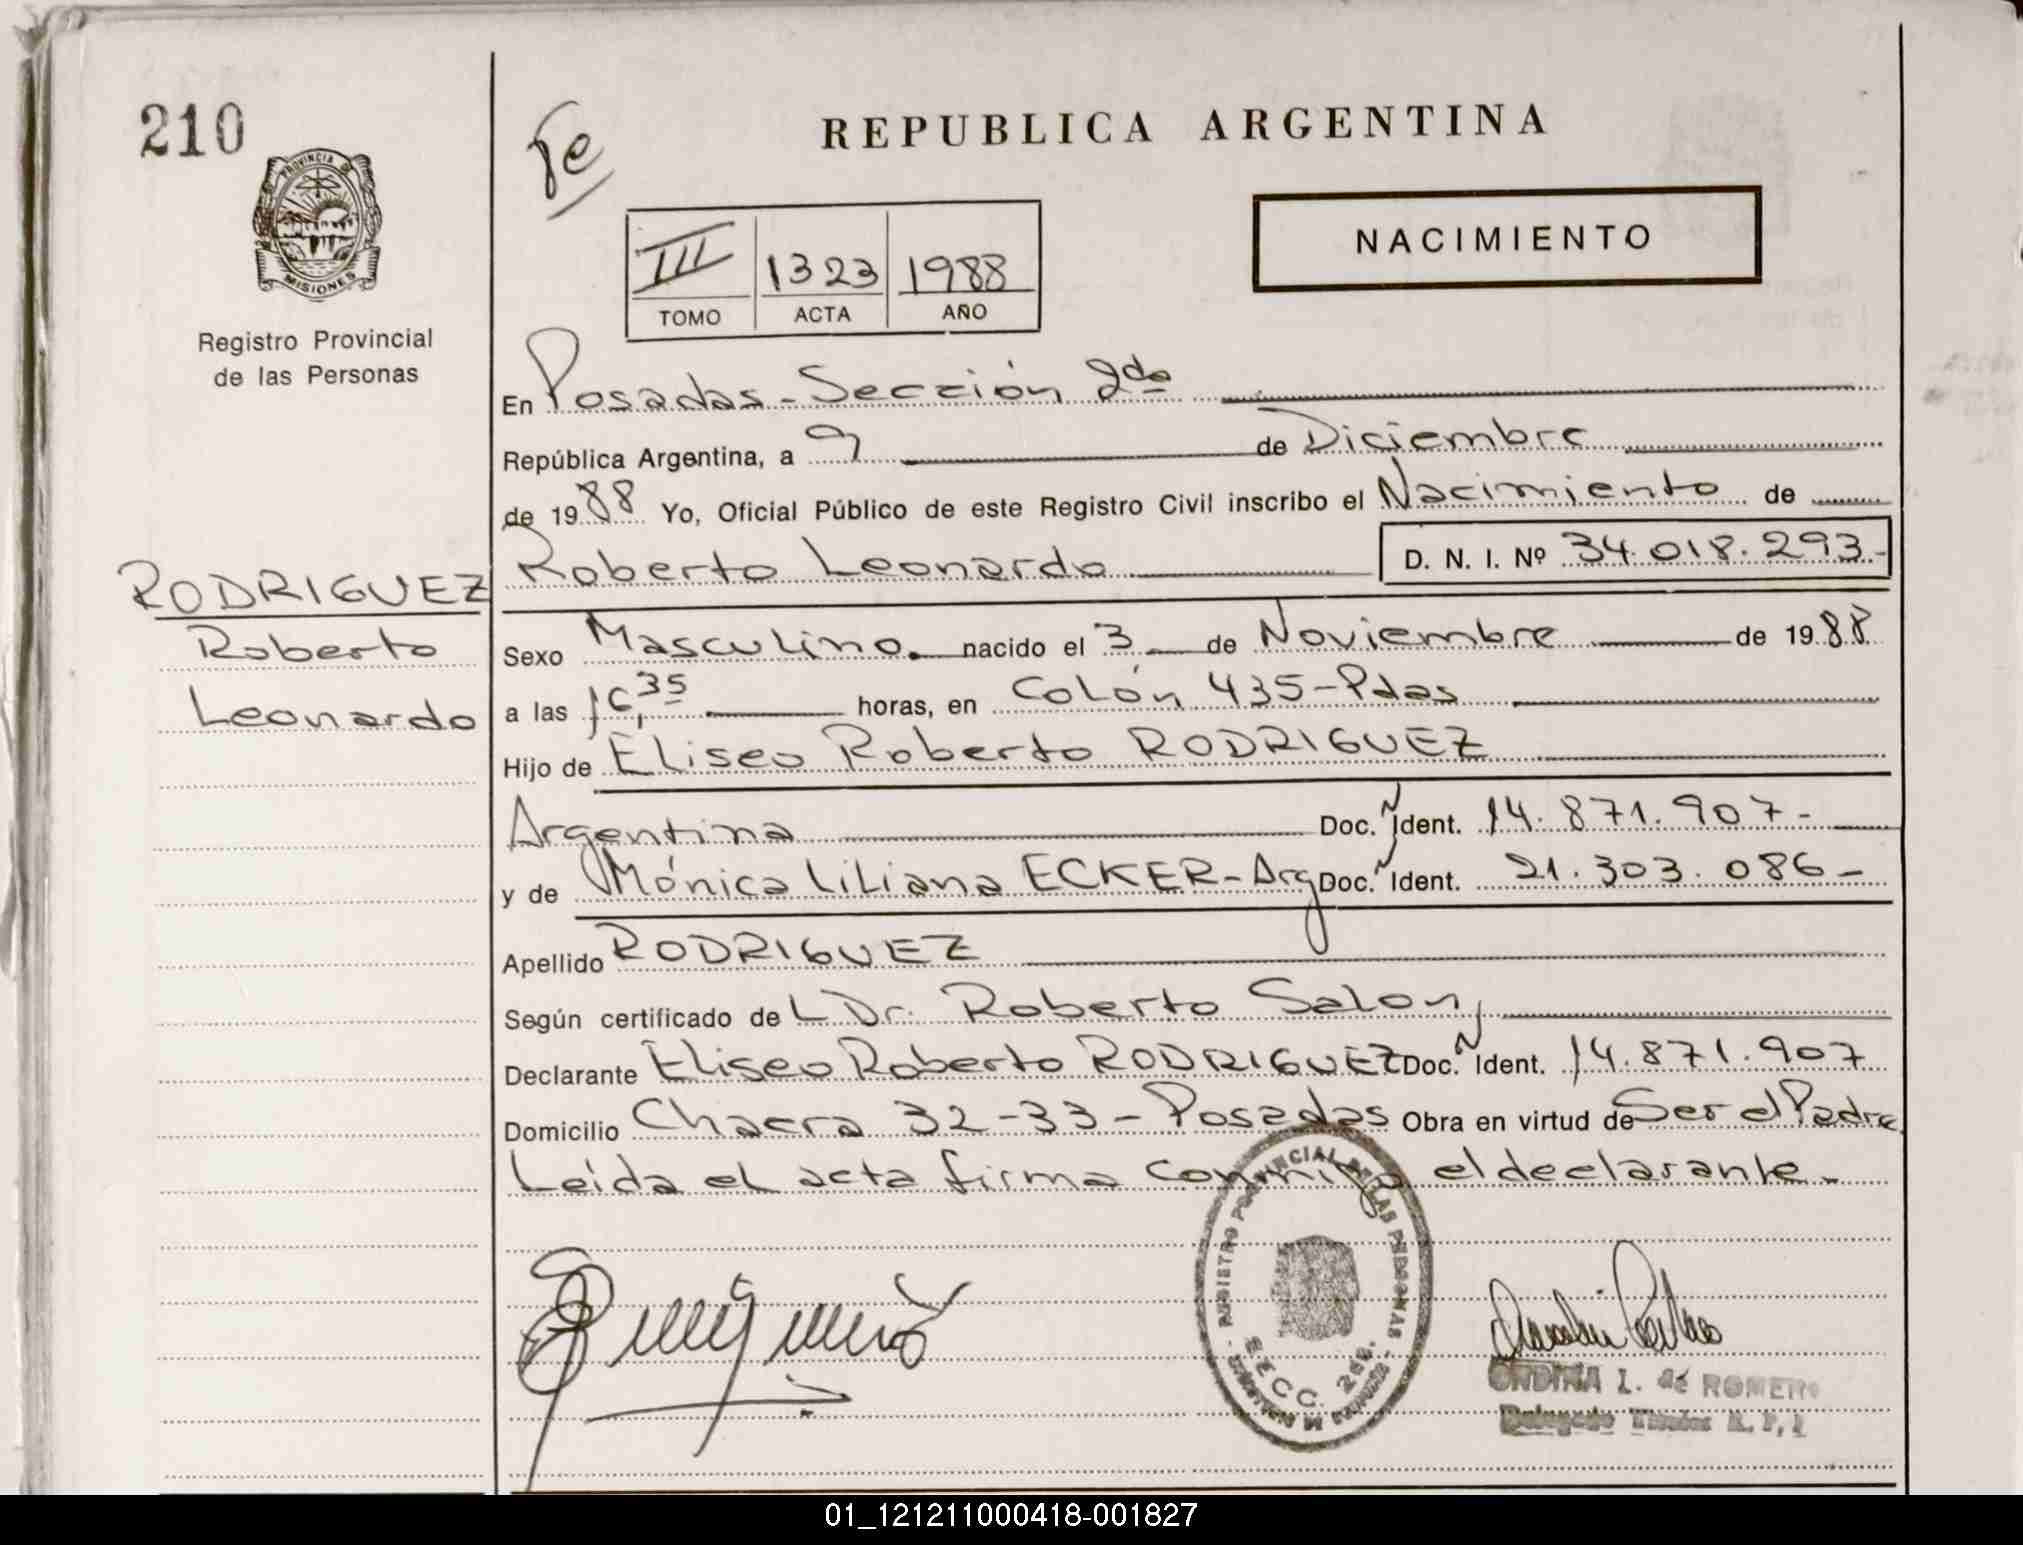 210
PROVINCIA DE
MISIONES
Registro Provincial
de las Personas
RODRIGUEZ
Roberto
Leonardo
REPUBLICA ARGENTINA
NACIMIENTO
III 1323 1988
TOMO ACTA AÑO
En Posadas - Sección 2da
República Argentina, a 9 de Diciembre
de 1988 Yo, Oficial Público de este Registro Civil inscribo el Nacimiento de
Roberto Leonardo D. N. I. Nº 34.018.293.-
Sexo Masculino. nacido el 3 de Noviembre de 1988
a las 16,35 horas, en Colón 435-Pdas
Hijo de Eliseo Roberto RODRIGUEZ
Argentina Doc. Ident. 14.871.907-
y de Mónica Liliana ECKER-Arg Doc. Ident. 21.303.086-
Apellido RODRIGUEZ
Según certificado de L Dr. Roberto Salon,
Declarante Eliseo Roberto RODRIGUEZ Doc. Ident. 14.871.907
Domicilio Chacra 32-33-Posadas Obra en virtud de Ser el Padre
Leída el acta firma conmigo el declarante.-
REGISTRO PROVINCIAL DE LAS PERSONAS
SECC. 2da.
ONDINA I. de ROMERO
Delegado Titular R. P.
01_121211000418-001827